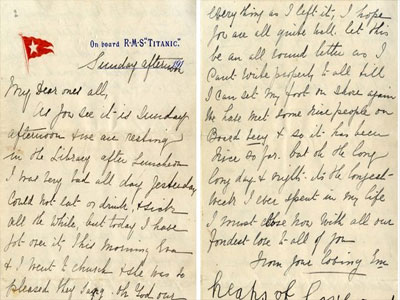 On board R·M·S "TITANIC."
Sunday afternoon
My Dear ones all,
As you see it is Sunday
afternoon & we are resting
in the Library after Luncheon
I was very bad all day yesterday
Could not eat or drink, & sick
all the while, but today I have
got over it, This morning Eva
& I went to church & she was so
pleased they sang, Oh God our
everything as I left it; I hope
you are all quite well. let this
be an all round letter as I
Cant write properly to all till
I can set my foot on shore again
We have met some nice people on
Board Lucy & so it has been
nice so far. but oh the long
long day & night. its the longest
week I ever spent in my life
I must close now with all our
fondest love to all of you
From your loving Em.
heaps of Love